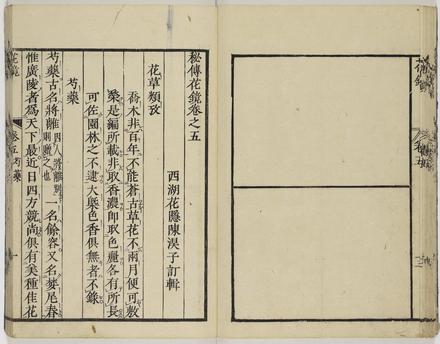 秘傳花鏡卷之五
西湖花隱陳淏子訂輯
花草類攷
喬木非百年不能蒼古草花不兩月便可敷
榮是編所載非取香濃即取色麗各有所長
可佐園林之不逮大槩色香俱無者不錄
芍藥
芍藥古名將離因人將離別則贈之也一名餘容又名婪尾春
惟廣陵者為天下最近日四方競尚俱有美種佳花
花鏡
卷五芍藥
一